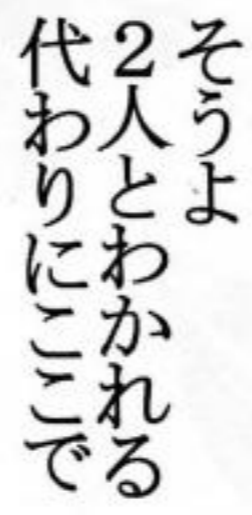 そうよ
２人とわかれる
代わりにここで